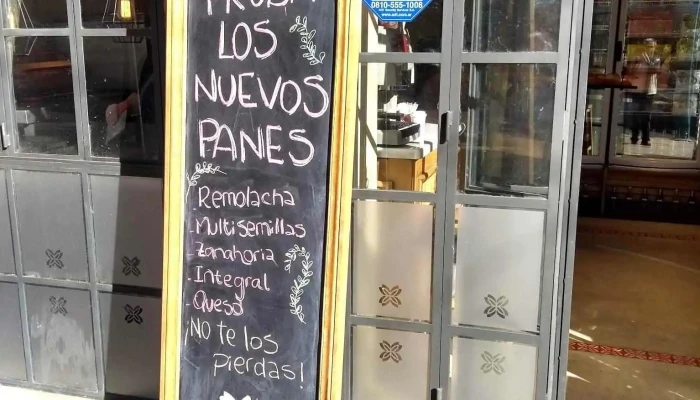 PROBÁ
LOS
NUEVOS
PANES
- Remolacha
- Multisemillas
- Zanahoria
- Integral
- Queso
¡NO te los
pierdas!
0810-555-1008